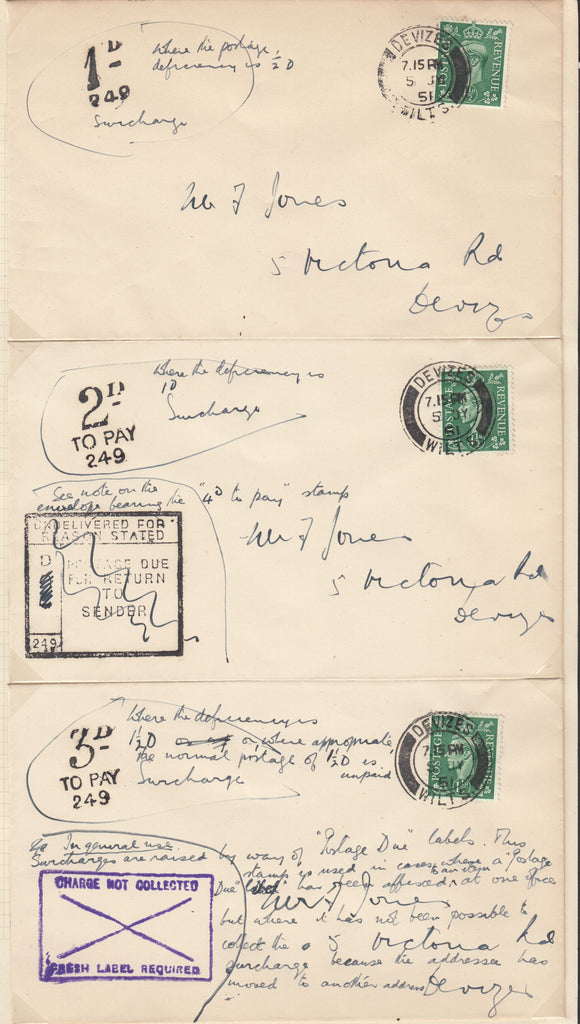 1D
249
Where the postage
deficiency is ½D
Surcharge
DEVIZES
7.15 PM
5 JY
51
WILTS
POSTAGE REVENUE
Mr F Jones
5 Victoria Rd
Devizes
2D
TO PAY
249
Where the deficiency is
1D
Surcharge
DEVIZES
7.15 PM
5 JY
WILTS
POSTAGE REVENUE
See note on the
envelope bearing the "4D to pay" stamp
UNDELIVERED FOR
REASON STATED
D
POSTAGE DUE
FOR RETURN
TO
SENDER
249
Mr F Jones
5 Victoria Rd
Devizes
3D
TO PAY
249
Where the deficiency is
1½D or, where appropriate
the normal postage of 1½D is
unpaid
Surcharge
DEVIZES
7.15 PM
5 JY
51
WILTS
POSTAGE REVENUE
In general use.
Surcharges are raised by way of "Postage Due" labels. This
stamp is used in cases where a "Postage
Due" label has been affixed at one office
but where it has not been possible to
collect the
surcharge because the addressee has
moved to another address
CHARGE NOT COLLECTED
FRESH LABEL REQUIRED
Mr F Jones
5 Victoria Rd
Devizes